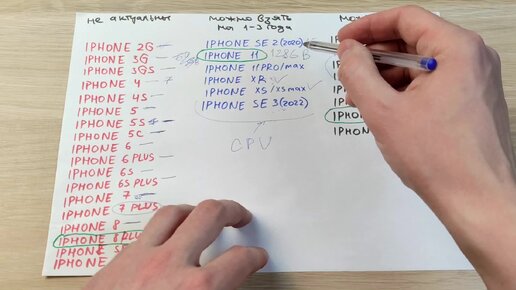 не актуальны
IPHONE 2G
IPHONE 3G
IPHONE 3GS
IPHONE 4
IPHONE 4S
IPHONE 5
IPHONE 5S
IPHONE 5C
IPHONE 6
IPHONE 6 PLUS
IPHONE 6S
IPHONE 6S PLUS
IPHONE 7
IPHONE 7 PLUS
IPHONE 8
IPHONE 8 PLUS
IPHONE
IPHONE
можно взять
на 1-3 года
IPHONE SE 2 (2020)
IPHONE 11 128Gb
IPHONE 11 PRO/MAX
IPHONE XR
IPHONE XS/XS MAX
IPHONE SE 3 (2022)
CPU
IPHO